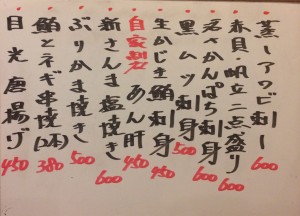 蒸しアワビ刺し 600
赤貝・帆立二点盛り 600
名さかんぱち刺身 600
黒ムツ刺身 500
生かじき鮪刺身 450
自家製 あん肝 450
新さんま塩焼き 600
ぶりかま焼き 500
鮪とネギ串焼(2本) 380
目光唐揚げ 450